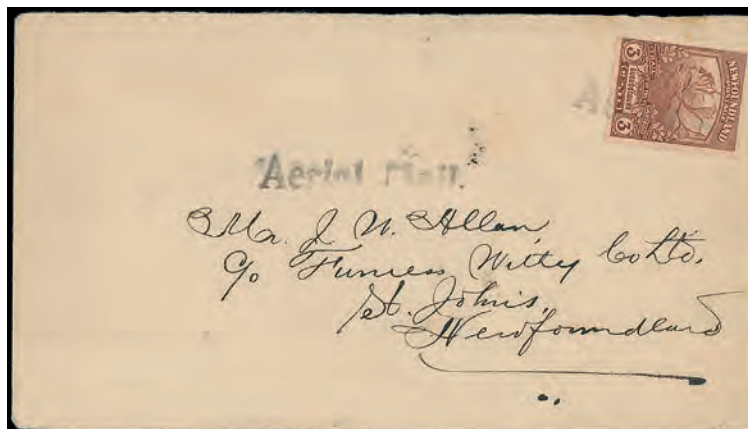 NEWFOUNDLAND
3 3
A
"Aerial Mail."
Mr. J. W. Allan,
c/o Furness Withy Co Ltd.
St. John's,
Newfoundland